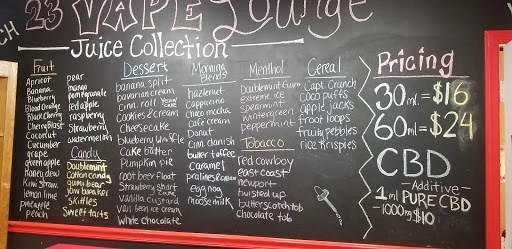 23 VAPE Lounge
CH
Juice Collection
Fruit
Apricot
Banana
Blueberry
Blood Orange
Black Cherry
Cherry Blast
Coconut
Cucumber
grape
green apple
Honey dew
Kiwi Straw.
lemon lime
pineapple
peach
pear
mango
pomegranate
red apple
raspberry
Strawberry
watermelon
Candy
Doublemint
Cotton candy
gummi bear
jaw breaker
skittles
Sweet tarts
Dessert
banana split
bavarian cream
cinn. roll
cookies & cream
Cheesecake
blueberry waffle
Cake batter
Pumpkin pie
root beer float
Strawberry short
Vanilla custard
Van. bean ice cream
White Chocolate
Morning
Blends
hazlenut
Cappucino
choco mocha
chai
Donut
cinn. danish
butter toffee
Caramel
pralines & cream
egg nog
moose milk
Menthol
Doublemint Gum
extreme ice
Spearmint
wintergreen
peppermint
Tobacco
red cowboy
east coast
newport
twisted up
butterscotch tob
Chocolate tob
Cereal
Capt Crunch
coco puffs
apple jacks
froot loops
fruity pebbles
rice krispies
Pricing
30ml. = $16
60ml = $24
CBD
- Additive -
1 ml PURE CBD
- 1000mg $10